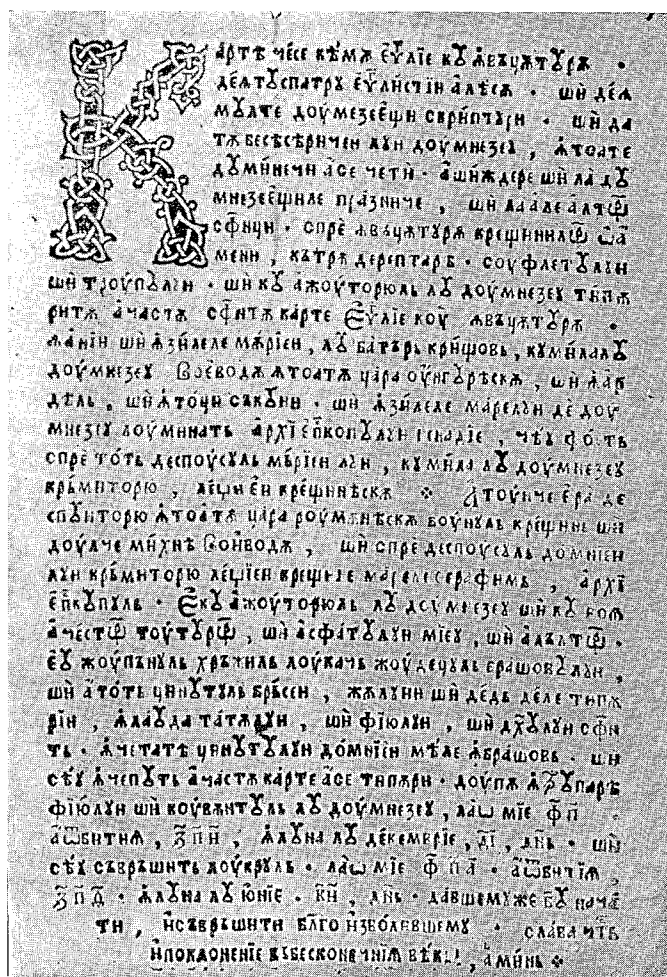 Карте че́се кѣ́мѫ є҆ѵⷢ҇лїе кꙋ ꙟвъцѫтꙋрѫ ·
де́ѧтꙋспатрꙋ є҆ѵⷢ҇ли́стїи але́сѫ · шѝ де́ѧ
мꙋлте доумезее́щи скри́птꙋри · шѝ да
тѫ бесѣсѣри́чеи лꙋи доумнезеꙋ , ꙟтоате
дꙋми́нечи а́се чети̂ · а҆ши́ждере шѝ ла дꙋ
мнезее́щиле пра́зниче , шѝ лаа́ле а́лтѡⷬ
сфи́нци · спре̂ ꙟвъцѫтꙋрѫ креши́нилѡⷬ ѡ҆а́
мени , кѣ́трѫ дерептарѣ · соуфлетꙋлꙋи
шѝ троу́пꙋлꙋи · шѝ кꙋ ажоуторюль лꙋ доумнезеꙋ типѫ
ритѫ ача́стѫ сфи́нтѫ ка́рте Є҆ѵⷢ҇лїе коу ꙟвъцѫтꙋрѫ ·
ꙟа́нїи шѝ ꙟзи́леле мѫ́рїеи , лꙋ ба́търь кри́щовь , кꙋми́лалꙋ
доумнезеꙋ Воево́дѫ ꙟтоа́тѫ ца́ра оу҆нгꙋрѣ́скѫ , шѝ ꙟар
дѣ́ль , шѝ ꙟто́ци съ́кꙋии · шѝ ꙟзи́леле ма́релꙋи де̂ доу
мнезеꙋ лоумина́ть а҆рхїе҆пⷭ҇копꙋлꙋи гена́дїе , че́ꙋ фо́ть
спре то́ть деспоу́сꙋль мъ́рїеи лꙋи , кꙋми́ла лꙋ доумнезеꙋ
кръмиторю , ле́џїеи кре́щинѣскѫ ⁘ Атоу́нче є҆ра̂ де
спꙋи́торю ꙟтоа́тѫ ца́ра роумънѣ́скѫ боу́нꙋль креши́нь шѝ
доу́лче ми́хнѣ Вои́водѫ , шѝ спре́ деспоу́сꙋль до́мнїеи
лꙋи кръмиторю ле́џїеи креши́не ма́релесерафи́мь , а҆рхї
є҆пⷭ҇кꙋпꙋль · Є҆кꙋ ажоуторюль лꙋ доумнезеꙋ шѝ кꙋ воѧ̂
аче́стѡⷬ тоу́тꙋрѡⷬ , шѝ асфа́тꙋлꙋи мїеꙋ , шѝ ала́лтѡⷬ ·
є҆ꙋ жоупъ́нꙋль хръ́жиль лоука́чь жоуде́цꙋль брашо́вꙋлꙋи ,
шѝ ато́ть цинꙋ́тꙋль бръ́сеи , жѫлꙋи̂и шѝ де́дь де́ле типѫ
ри̂и , ꙟла́ꙋда та́тѫлꙋи , шѝ фїюлꙋи , шѝ дⷯ҇ꙋлꙋи сфн̂
ть · ꙟчета́тѣ цинꙋ́тꙋлꙋи до́мнїеи мѣ́ле ꙟбрашо́вь · шѝ
се́ꙋ ꙟчепꙋ́ть ача́стѫ ка́рте а́се типѫри · доупѫ ꙟтрꙋпа́рѣ
фїюлꙋи шѝ коувѫнтꙋль лꙋ доумнезеꙋ , лаѡ҆ мїе ф҃п
а҆ѡⷮби́тиѧ , ҂зп҃н , ꙟлꙋ́на лꙋ деке́мврїе , д҃і , дн҃ь · шѝ
се́ꙋ съвръши́ть лоукрꙋль · лаѡ҆ мїе ф҃па · а҆ѡⷮби́чїѧ
҂зп҃ѳ · ꙟлꙋ́на лꙋ ю҆нїе · к҃и , дн҃ь · да́вшемꙋже бг҃ꙋ нача́
ти , и҆съвръши́ти бл҃го и҆зво́левшемꙋ · сла́ва чть
и҆поклоне́нїе въбесконе́чнїѧ вѣ́кы , а҆ми́нь ⁘